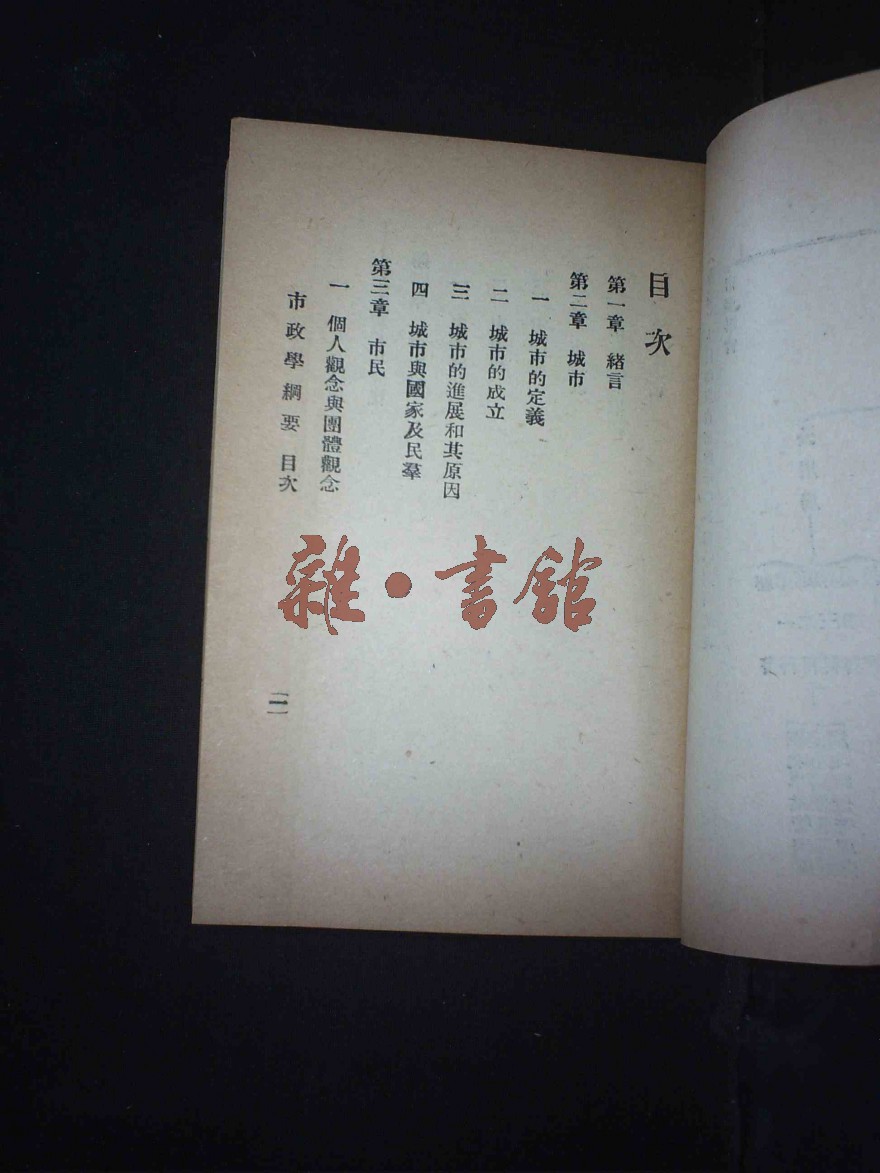 目次
第一章 緒言
第二章 城市
一 城市的定義
二 城市的成立
三 城市的進展和其原因
四 城市與國家及民羣
第三章 市民
一 個人觀念與團體觀念
市政學綱要 目次
一
雜·書館